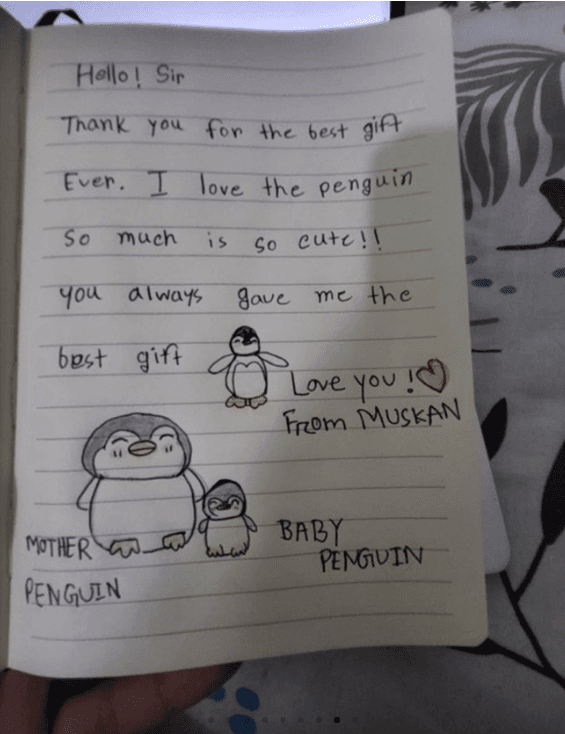 Hello! Sir
Thank you for the best gift
Ever. I love the penguin
So much is so cute!!
you always gave me the
best gift
Love you!
From MUSKAN
MOTHER
PENGUIN
BABY
PENGUIN